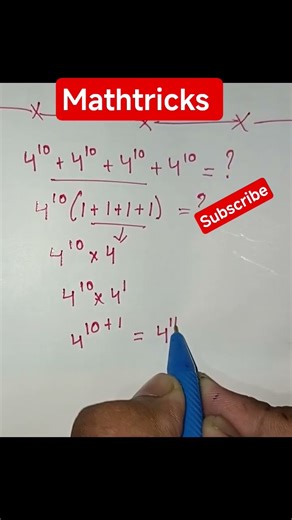 Mathtricks
4¹⁰ + 4¹⁰ + 4¹⁰ + 4¹⁰ = ?
4¹⁰ (1+1+1+1) = ?
Subscribe
4¹⁰ × 4
4¹⁰ × 4¹
4¹⁰⁺¹ = 4¹¹